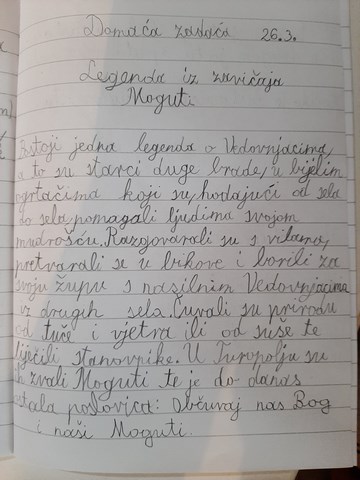 Domaća zadaća 26.3.
Legenda iz zavičaja
Moguti
Postoji jedna legenda o Vedovnjacima,
a to su starci duge brade, u bijelim
ogrtačima koji su, hodajući od sela
do sela, pomagali ljudima svojom
mudrošću. Razgovarali su s vilama,
pretvarali se u bikove i borili za
svoju župu s nasilnim Vedovnjacima
iz drugih sela. Čuvali su prirodu
od tuče i vjetra ili od suše te
liječili stanovnike. U Turopolju su
ih zvali Moguti te je do danas
ostala poslovica: Občuvaj nas Bog
i naši Moguti.